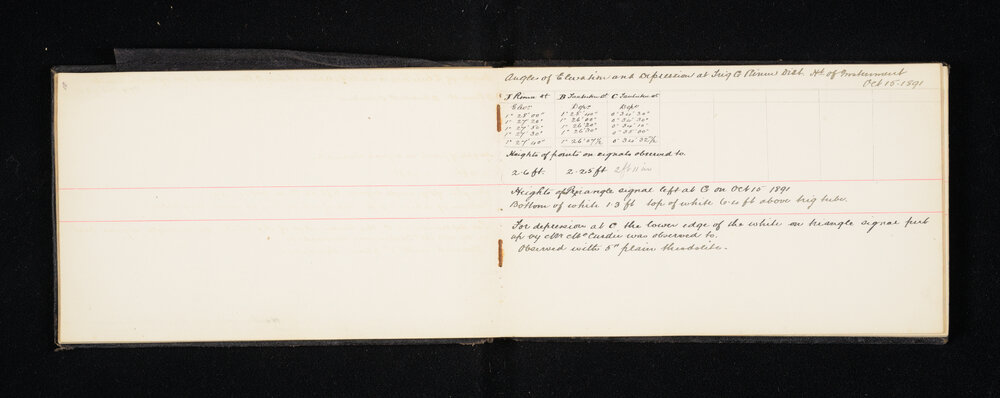 Angles of Elevation and Depression at Trig C Rimu Dist. Ht. of Instrument
Oct 15-1891
J Rimu at B C
Elev. Depr Depr
1° 28' 00" 1° 25' 40" 0° 34' 30"
1° 27' 20" 1° 26' 00" 0° 34' 30"
1° 27' 50" 1° 26' 20" 0° 34' 10"
1° 27' 30" 1° 26' 30" 0° 35' 00"
1° 27' 40" 1° 26' 07½ 0° 34' 32½
Heights of points on signals observed to.
2.6 ft. 2.25 ft 2 ft 11 in
Heights of triangle signal left at C on Oct 15 1891
Bottom of white 1.3 ft top of white ft above trig tube.
For depression at C the lower edge of the white on triangle signal put
up by Mr McCurdie was observed to.
Observed with 5" plain theodolite.